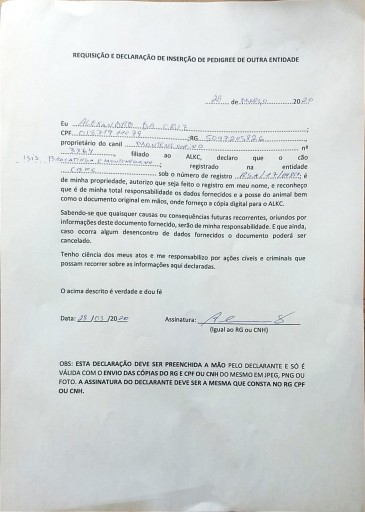 REQUISIÇÃO E DECLARAÇÃO DE INSERÇÃO DE PEDIGREE DE OUTRA ENTIDADE
28 de MARÇO 2020
Eu ALEXANDRO DA CRUZ
CPF ;RG
proprietário do canil nº
filiado ao ALKC, declaro que o cão
registrado na entidade
sob o número de registro é
de minha propriedade, autorizo que seja feito o registro em meu nome, e reconheço
que é de minha total responsabilidade os dados fornecidos e a posse do animal bem
como o documento original em mãos, onde forneço a cópia digital para o ALKC.
Sabendo-se que quaisquer causas ou consequências futuras recorrentes, oriundos por
informações deste documento fornecido, serão de minha responsabilidade. E que ainda,
caso ocorra algum desencontro de dados fornecidos o documento poderá ser
cancelado.
Tenho ciência dos meus atos e me responsabilizo por ações cíveis e criminais que
possam recorrer as informações aqui declaradas.
O acima descrito é verdade e dou fé
Data: 28 /03 /2020 Assinatura:
(Igual ao RG ou CNH)
OBS: ESTA DECLARAÇÃO DEVE SER PREENCHIDA A MÃO PELO DECLARANTE E SÓ É
VÁLIDA COM O ENVIO DAS CÓPIAS DO RG E CPF OU CNH DO MESMO EM JPEG, PNG OU
FOTO. A ASSINATURA DO DECLARANTE DEVE SER A MESMA QUE CONSTA NO RG CPF
OU CNH.